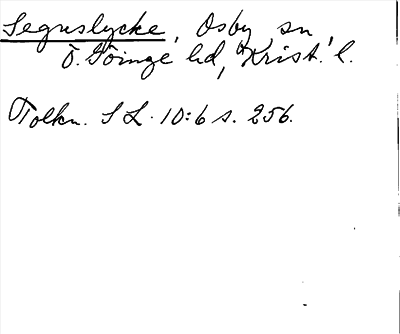 Segnslycke, Osby sn,
Ö. Göinge hd, Krist. l.
Tolkn. S L. 10:6 s. 256.